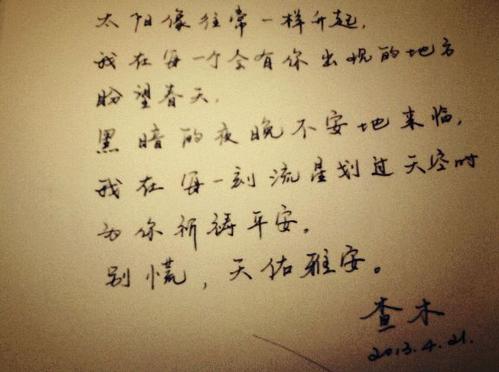 太阳像往常一样升起,
我在每一个会有你出现的地方
盼望春天,
黑暗的夜晚不安地来临,
我在每一刻流星划过天空时
为你祈祷平安。
别慌,天佑雅安。
查木
2013.4.21.